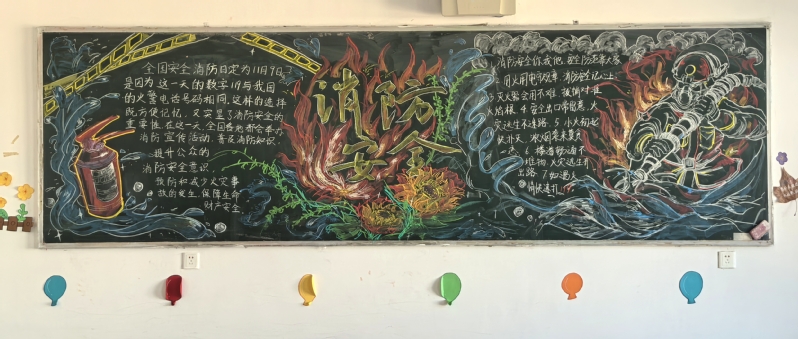 全国安全消防日定为11月9日
是因为这一天的数字119与我国
的火警电话号码相同,这样的选择
既方便记忆,又突显了消防安全的
重要性.在这一天全国各地都会举办
消防宣传活动,普及消防知识
提升公众的
消防安全意识,
预防和减少火灾事
故的发生,保障生命
财产安全
消防
安全
消防安全你我他,安全防范靠大家
灭火器会用不难,拔销对准
火焰根.4安全出口常留意,火
灾逃生不迷路.5小火初起
快扑灭,
火灾逃生开